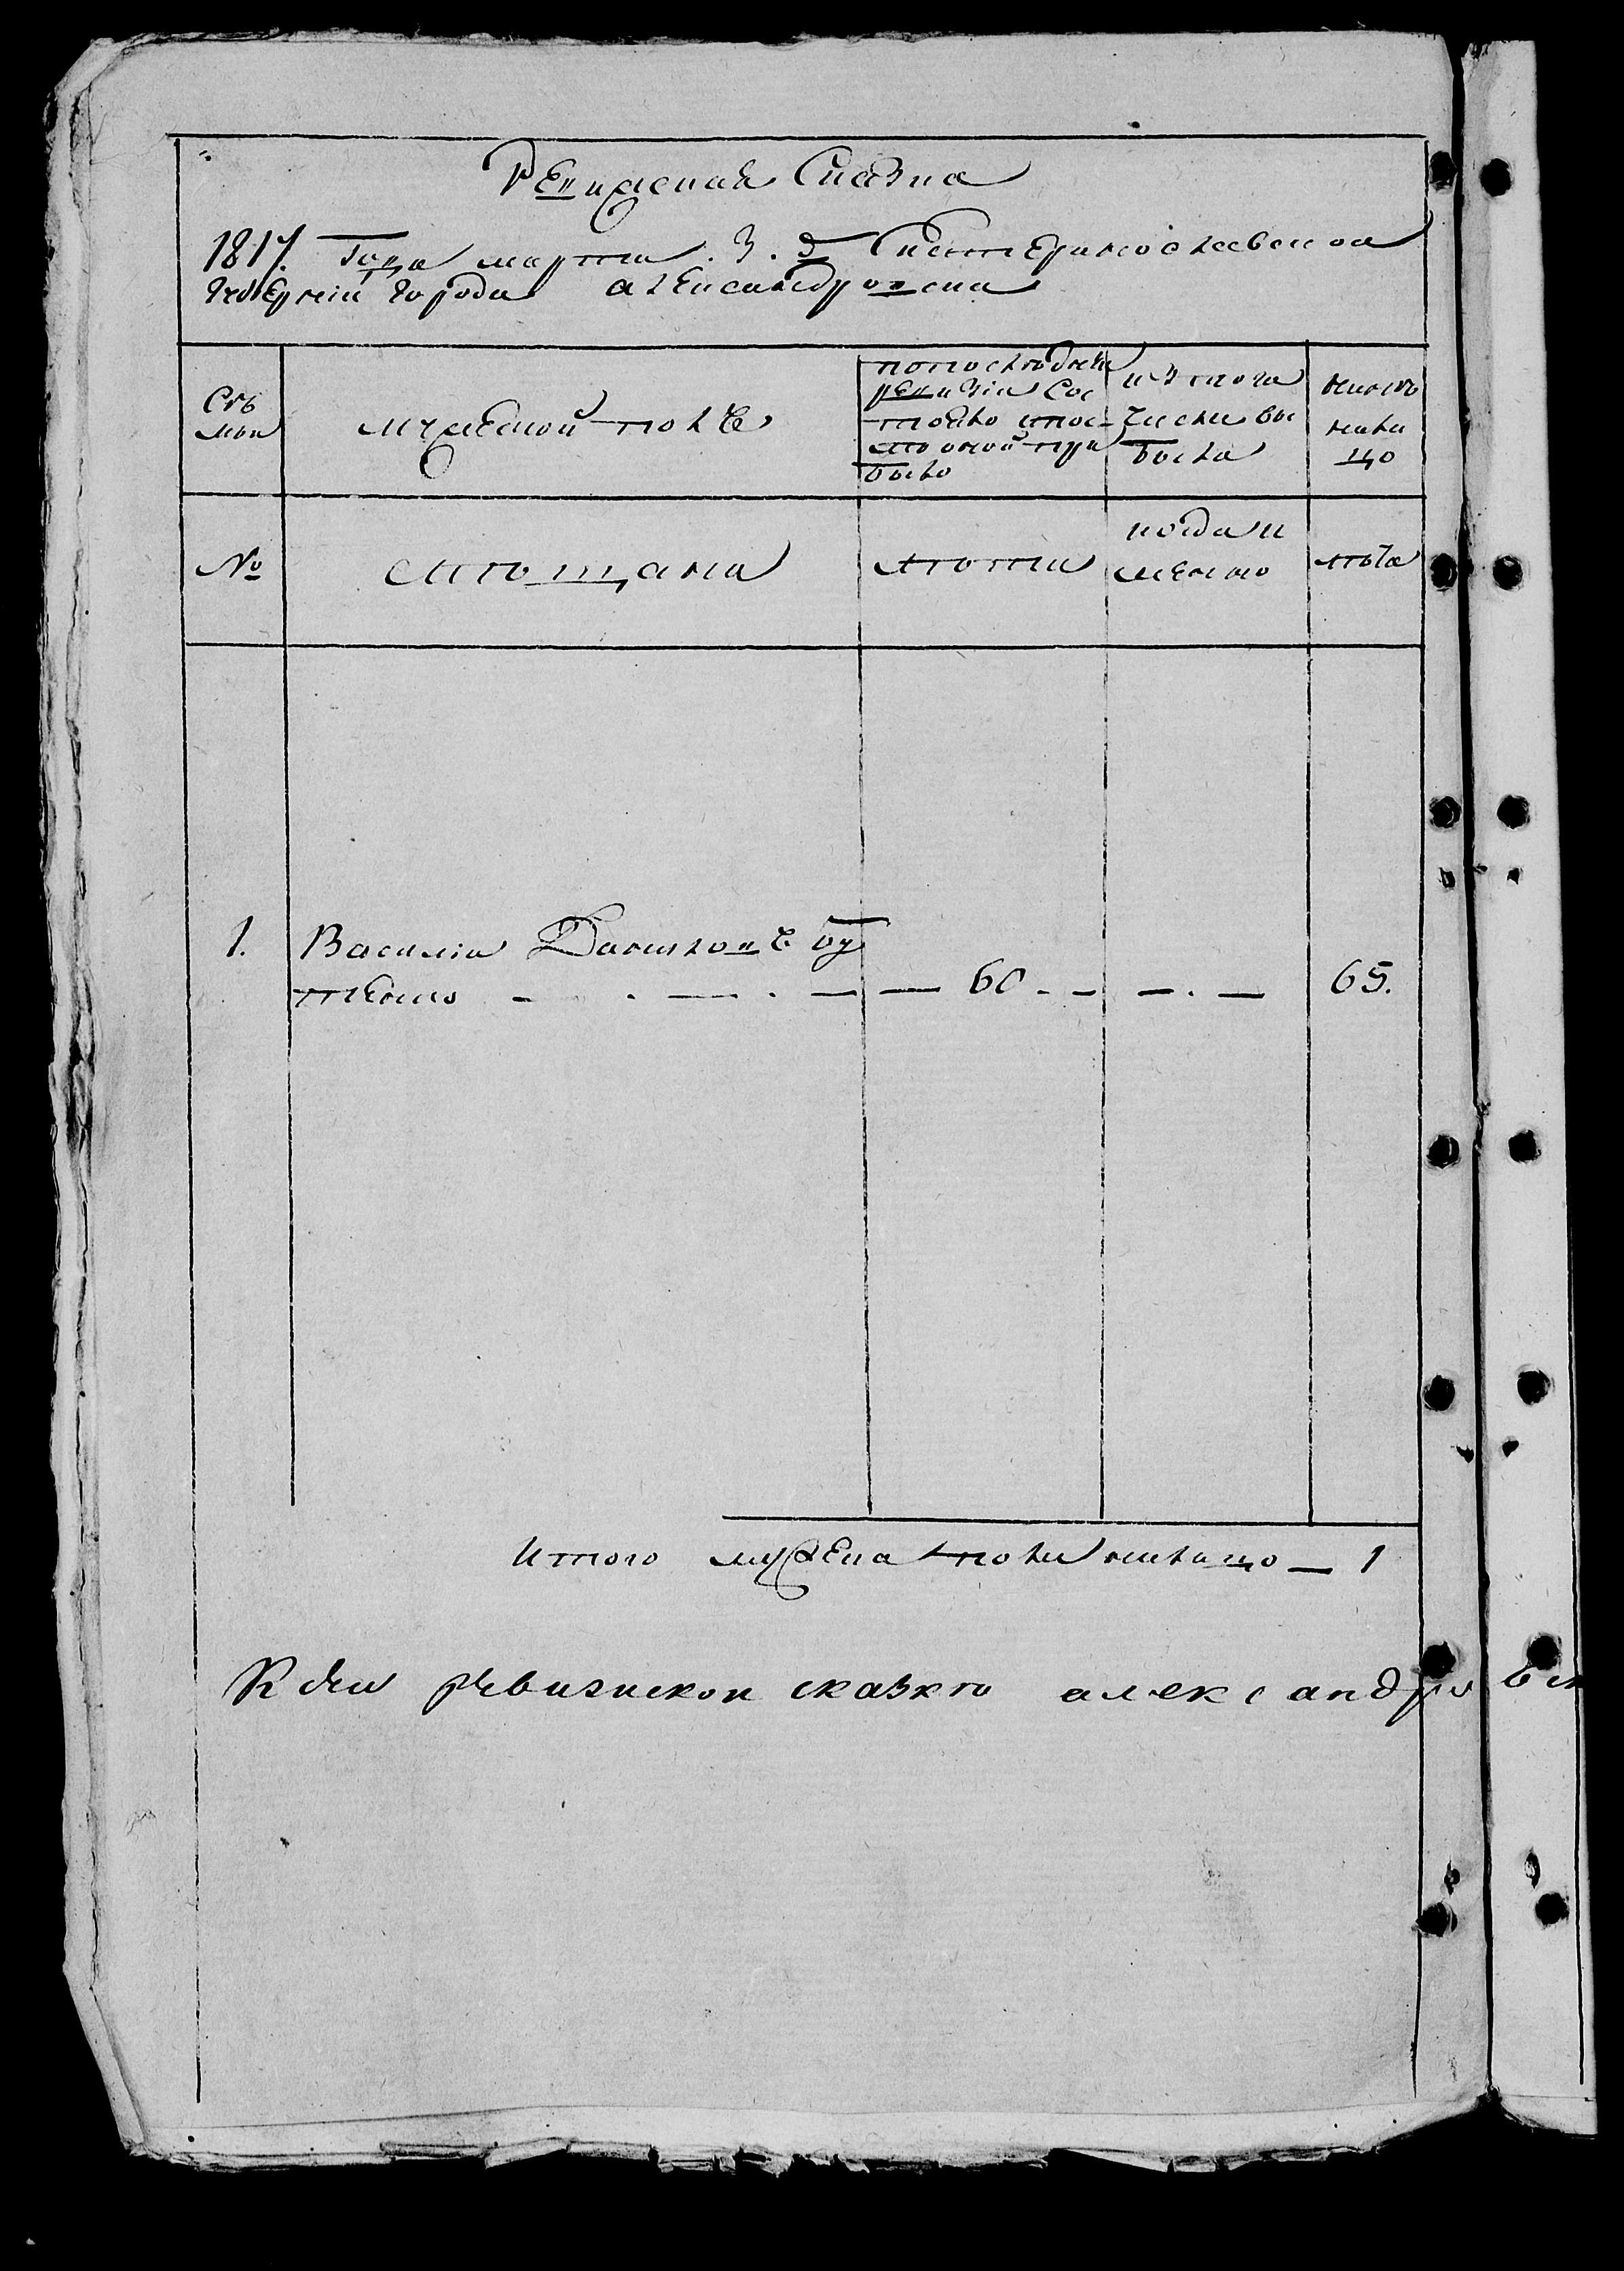 Ревижская Сказка
1817. Года марта 3. д Екатеринославской
губернии города александровска
Семьи
мужеской полъ
попоследней
ревизии Сос
тояло и пос
ле оной при
было
из того
числа вы
было
ныне въ
нали
цо
№
мещане
лета
когда и
имянно
лета
1.
Василий Даниловъ бу
тенко
60
65.
Итого мужеска пола налицо — 1
К сеи ревизскои сказке александров